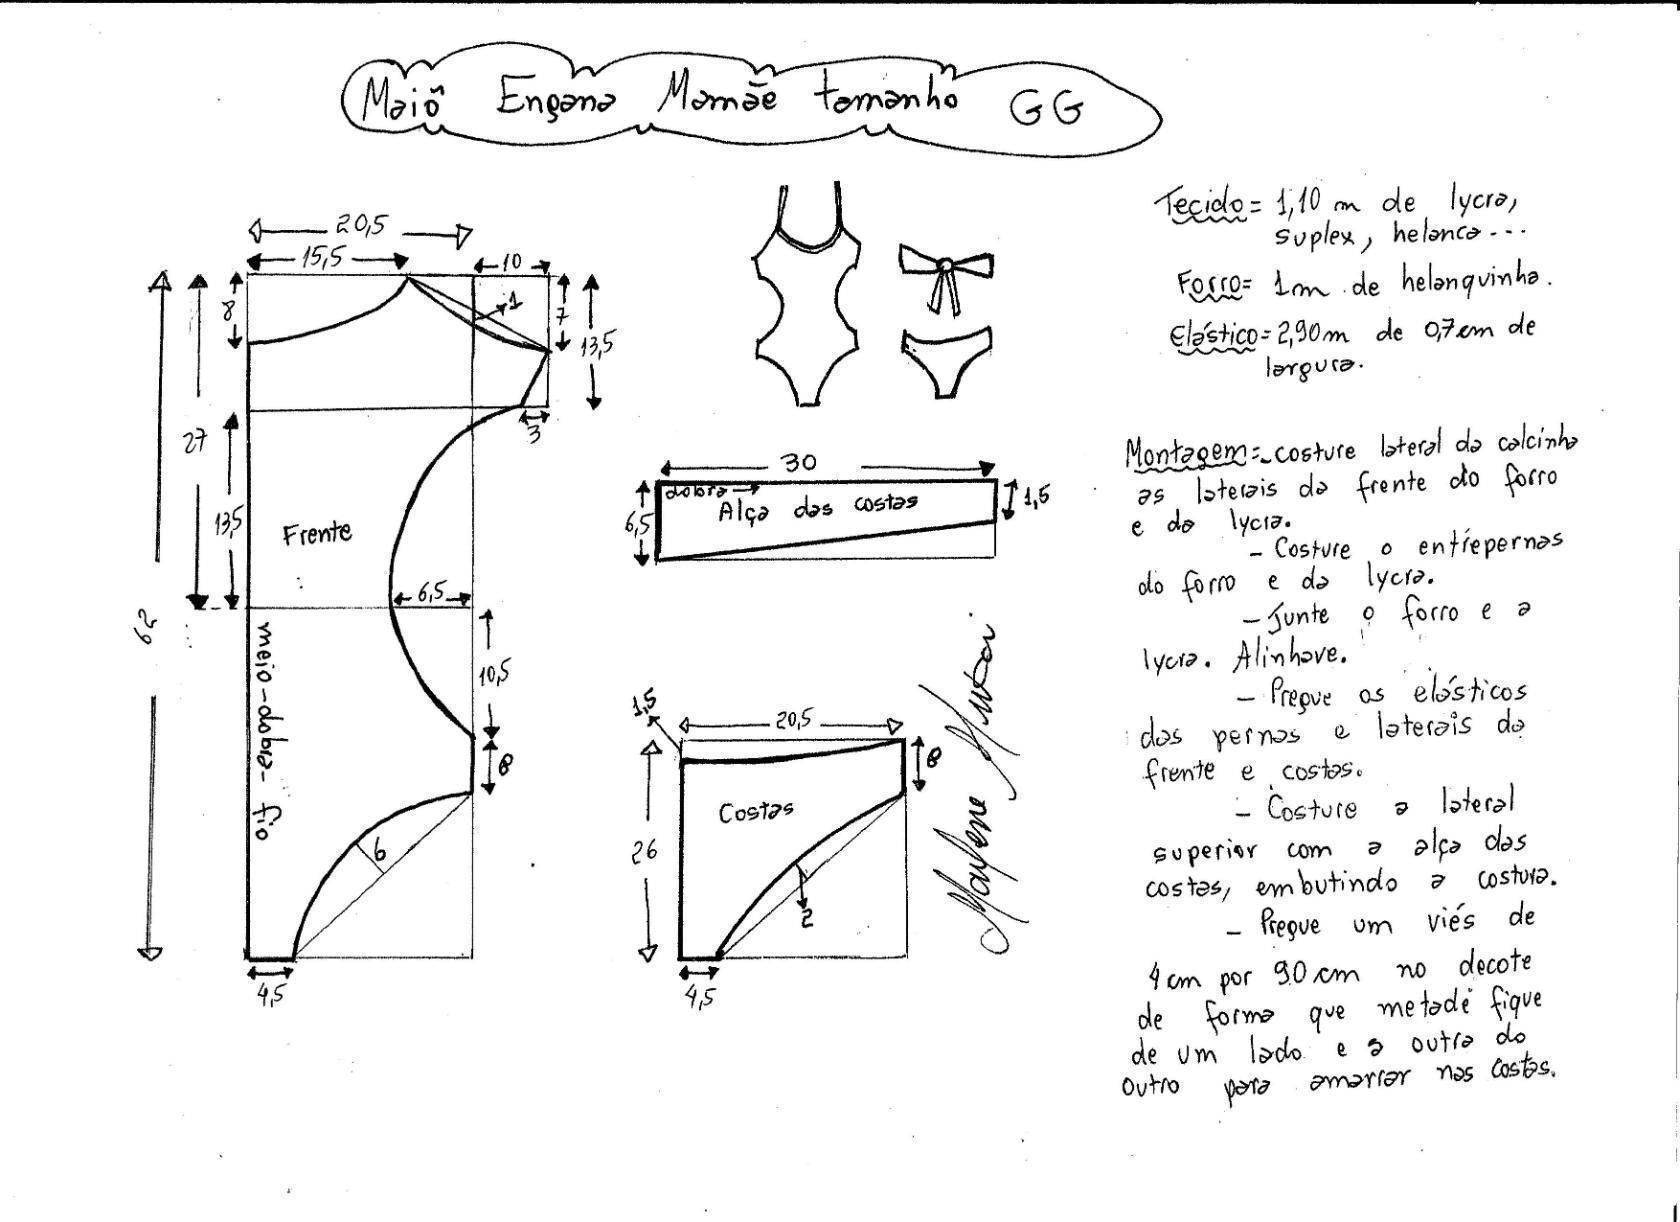 Maiô Engana Mamãe tamanho GG
20,5
15,5
10
8
1
7
13,5
3
27
13,5
62
Frente
6,5
10,5
8
meio-dobra-fio
6
4,5
30
dobra
6,5
Alça das costas
1,5
1,5
20,5
8
Costas
26
2
4,5
Marlene Mukai
Tecido = 1,10 m de lycra,
suplex, helanca...
Forro = 1m de helanquinha.
Elástico = 2,90m de 0,7cm de
largura.
Montagem: - costure lateral da calcinha
as laterais da frente do forro
e da lycra.
- Costure o entrepernas
do forro e da lycra.
- Junte o forro e a
lycra. Alinhave.
- Pregue os elásticos
das pernas e laterais da
frente e costas.
- Costure a lateral
superior com a alça das
costas, embutindo a costura.
- Pregue um viés de
4 cm por 90 cm no decote
de forma que metade fique
de um lado e a outra do
outro para amarrar nas costas.